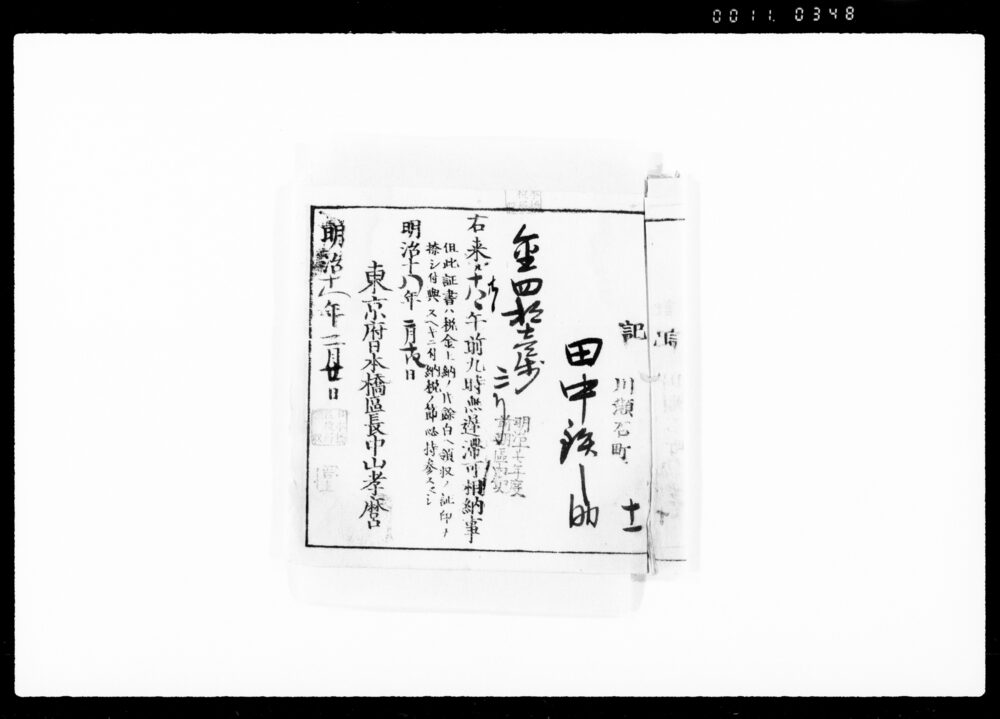 0011. 0348
記
川瀬石町
十一
田中鉄之助
金四拾七銭
二り
明治十七年度
前期區
右来ル十八日午前九時無遅滞可相納事
但此証書ハ税金上納ノ片餘白ヘ領収ノ証印ヲ
捺シ付與スヘキニ付納税ノ節必持参スヘシ
明治十八年二月 日
東京府日本橋區長中山孝麿
明治十八年二月廿日